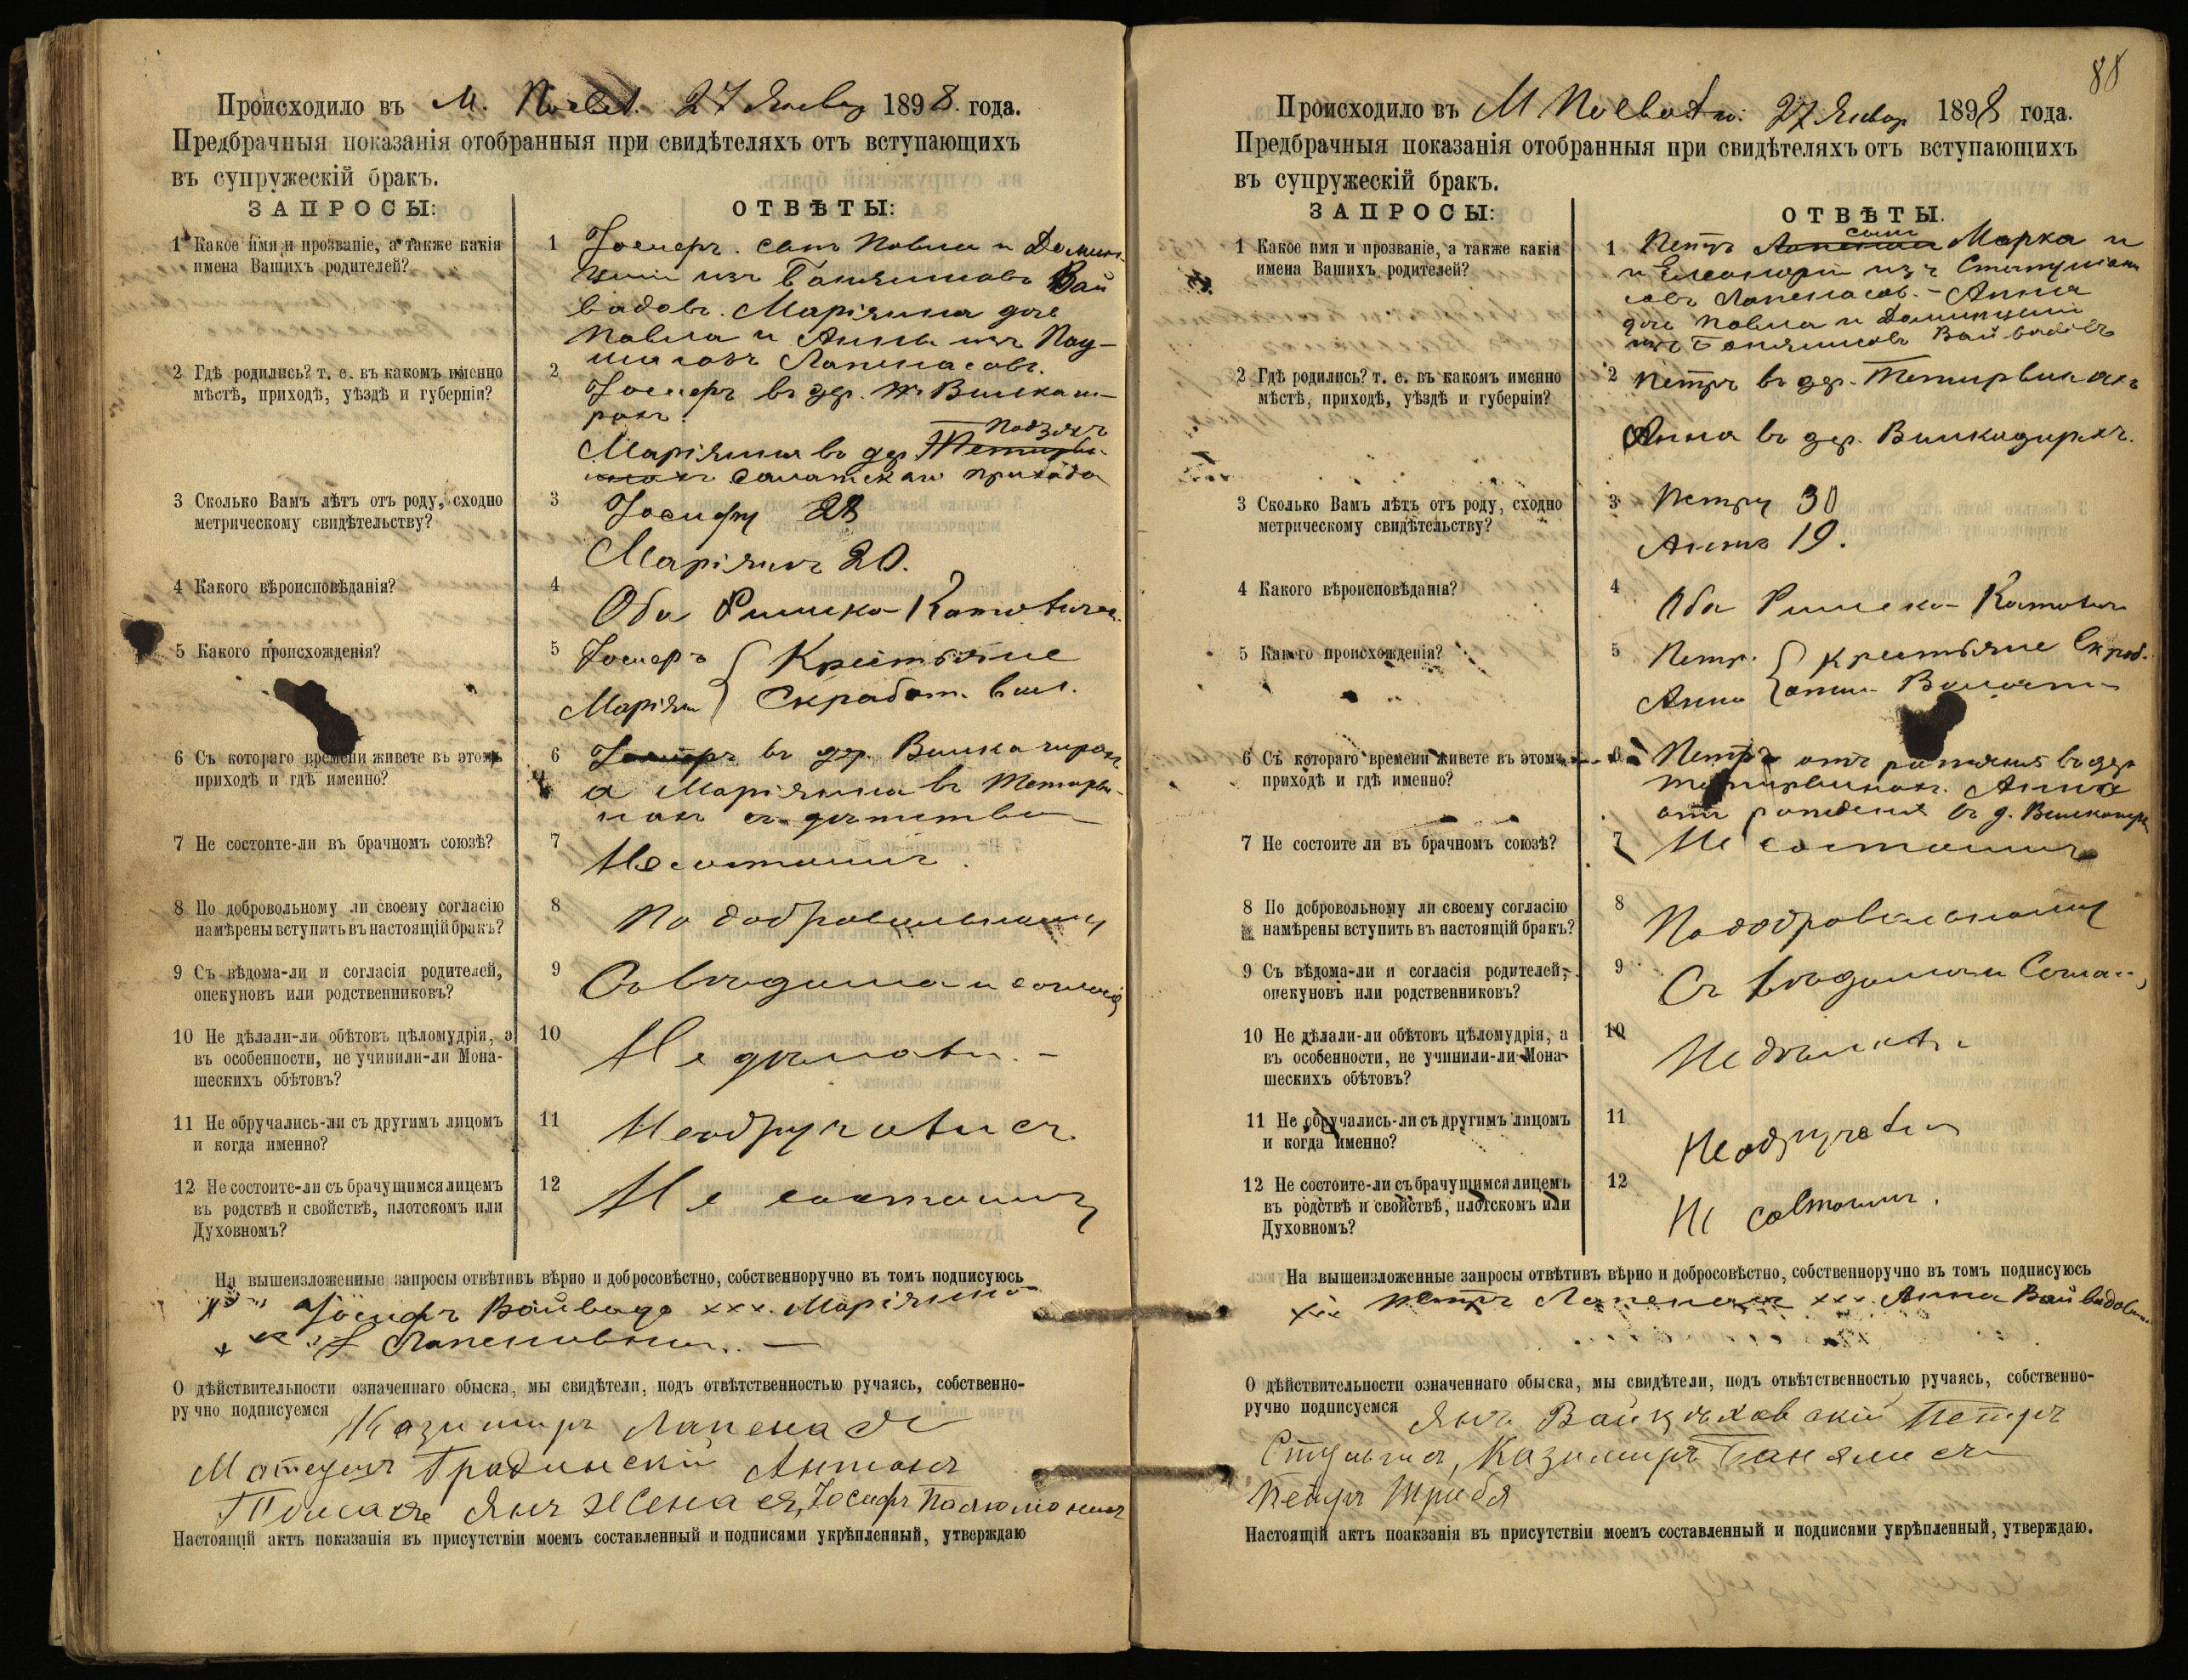 Происходило въ М. 27 Январ 1898. года.
Предбрачныя показанія отобранныя при свидѣтеляхъ отъ вступающихъ
въ супружескій бракъ.
ЗАПРОСЫ:
ОТВѢТЫ:
1 Какое имя и прозваніе, а также какія
имена Вашихъ родителей?
1 Іосифъ. сынъ Павла и Домин-
ціи изъ Банямисовъ Вай
вадовъ. Маріянна дочь
Павла и Анны изъ
Лапенасовъ.
2 Гдѣ родились? т. е. въ какомъ именно
мѣстѣ, приходѣ, уѣздѣ и губерніи?
2 Іосифъ въ дер.
Маріянна въ дер.
Салатскаго прихода
3 Сколько Вамъ лѣтъ отъ роду, сходно
метрическому свидѣтельству?
3 Іосифу 28
Маріяннѣ 20.
4 Какого вѣроисповѣданія?
4 Оба Римско-Католич.
5 Какого происхожденія?
5 Іосифъ Крестьяне
Маріян Скработ. вол.
6 Съ котораго времени живете въ этомъ
приходѣ и гдѣ именно?
6 Іосифъ въ дер.
а Маріянна въ Тетирви-
нахъ съ дѣтства
7 Не состоите-ли въ брачномъ союзѣ?
7 Не состоимъ.
8 По добровольному ли своему согласію
намѣрены вступить въ настоящій бракъ?
8 По добровольному
9 Съ вѣдома-ли и согласія родителей,
опекуновъ или родственниковъ?
9 Съ вѣдома и согласія
10 Не дѣлали-ли обѣтовъ цѣломудрія, а
въ особенности, не учинили-ли Мона-
шескихъ обѣтовъ?
10 Не дѣлали. -
11 Не обручались-ли съ другимъ лицомъ
и когда именно?
11 Не обручались
12 Не состоите-ли съ брачущимся лицемъ
въ родствѣ и свойствѣ, плотскомъ или
Духовномъ?
12 Не состоимъ
На вышеизложенные запросы отвѣтивъ вѣрно и добросовѣстно, собственноручно въ томъ подписуюсь
Іосифъ Вайвада ххх. Маріянна
Лапеновна. —
О дѣйствительности означеннаго обыска, мы свидѣтели, подъ отвѣтственностью ручаясь, собственно-
ручно подписуемся Казимиръ Лапенасъ
Матеушъ Градинскій Антонъ
Янъ Жсенася, Іосифъ
Настоящій актъ показанія въ присутствіи моемъ составленный и подписями укрѣпленный, утверждаю
88
Происходило въ М 27 Январ 1898 года.
Предбрачныя показанія отобранныя при свидѣтеляхъ отъ вступающихъ
въ супружескій бракъ.
ЗАПРОСЫ:
ОТВѢТЫ.
1 Какое имя и прозваніе, а также какія
имена Вашихъ родителей?
1 Петръ сынъ Марка и
и Елеоноры изъ
Лапенасов. - Анна
дочь Павла и Доминиціи
изъ Банямисовъ Вайвадовъ
2 Гдѣ родились? т. е. въ какомъ именно
мѣстѣ, приходѣ, уѣздѣ и губерніи?
2 Петръ въ дер. Тетирвинахъ
Анна въ дер.
3 Сколько Вамъ лѣтъ отъ роду, сходно
метрическому свидѣтельству?
3 Петру 30
Аннѣ 19.
4 Какого вѣроисповѣданія?
4 Оба Римско-Католич
5 Какого происхожденія?
5 Петр. Крестьяне Скраб.
Анна Волости
6 Съ котораго времени живете въ этомъ
приходѣ и гдѣ именно?
6 Петръ отъ рожденія въ дер
Тетирвинахъ. Анна
отъ рожденія въ д.
7 Не состоите ли въ брачномъ союзѣ?
7 Не состоимъ
8 По добровольному ли своему согласію
намѣрены вступить въ настоящій бракъ?
8 По добровольному
9 Съ вѣдома-ли и согласія родителей,
опекуновъ или родственниковъ?
9 Съ вѣдома и Соглас
10 Не дѣлали-ли обѣтовъ цѣломудрія, а
въ особенности, не учинили-ли Мона-
шескихъ обѣтовъ?
10 Не дѣлали
11 Не обручались-ли съ другимъ лицомъ
и когда именно?
11 Не обручались
12 Не состоите-ли съ брачущимся лицемъ
въ родствѣ и свойствѣ, плотскомъ или
Духовномъ?
12 Не состоимъ.
На вышеизложенные запросы отвѣтивъ вѣрно и добросовѣстно, собственноручно въ томъ подписуюсь
ххх Петръ Лапенасъ ххх. Анна Вайвадовна
О дѣйствительности означеннаго обыска, мы свидѣтели, подъ отвѣтственностью ручаясь, собственно-
ручно подписуемся Янъ Петръ
Казимиръ Банямисъ
Петръ Шрибя
Настоящій актъ поакзанія въ присутствіи моемъ составленный и подписями укрѣпленный, утверждаю.